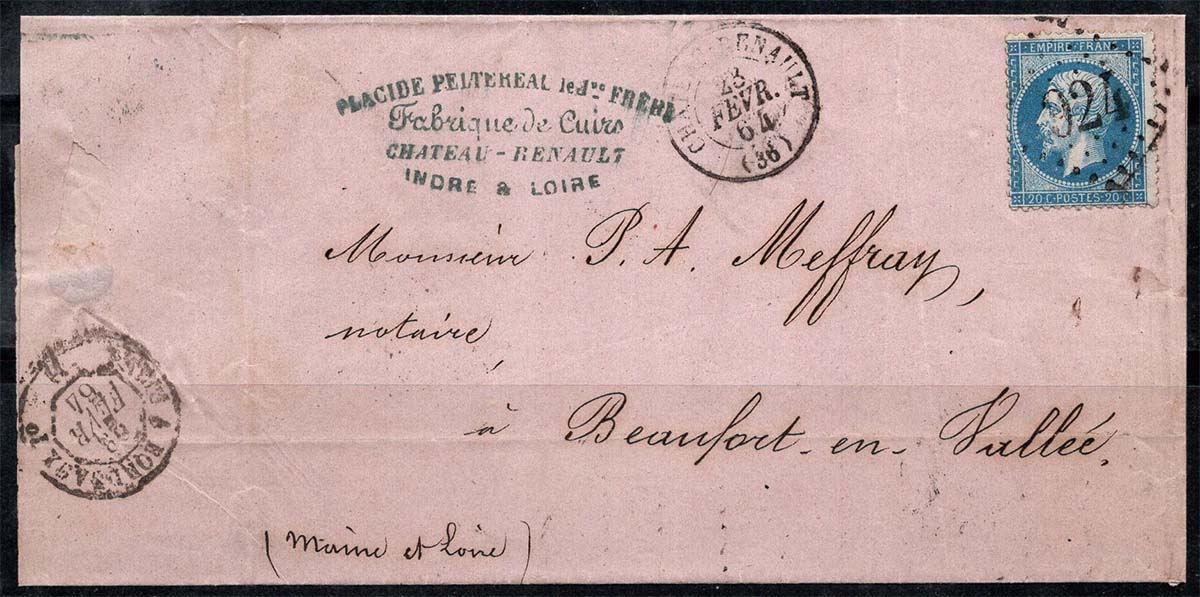 PLACIDE PELTEREAU le Jne FRÈRE
Fabrique de Cuirs
CHATEAU - RENAULT
INDRE & LOIRE
RENAULT
23
FEVR.
64
(36)
EMPIRE FRANC
924
20 C POSTES 20 C
Monsieur P. A. Meffray,
notaire,
à Beaufort-en-Vallée,
(Maine et Loire)
À BORDEAUX
FEVR
64